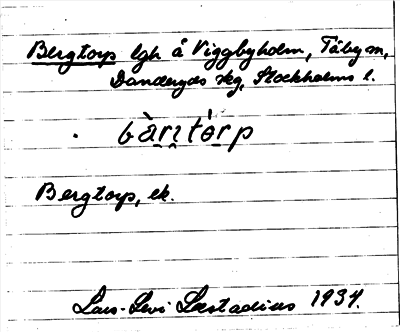 Bergtorp lgh å Viggbyholm, Täby sn,
Danderyds skg, Stockholms l.
bàrıtórp
Bergtorp, ek.
Lars-Levi Læstadius 1934.